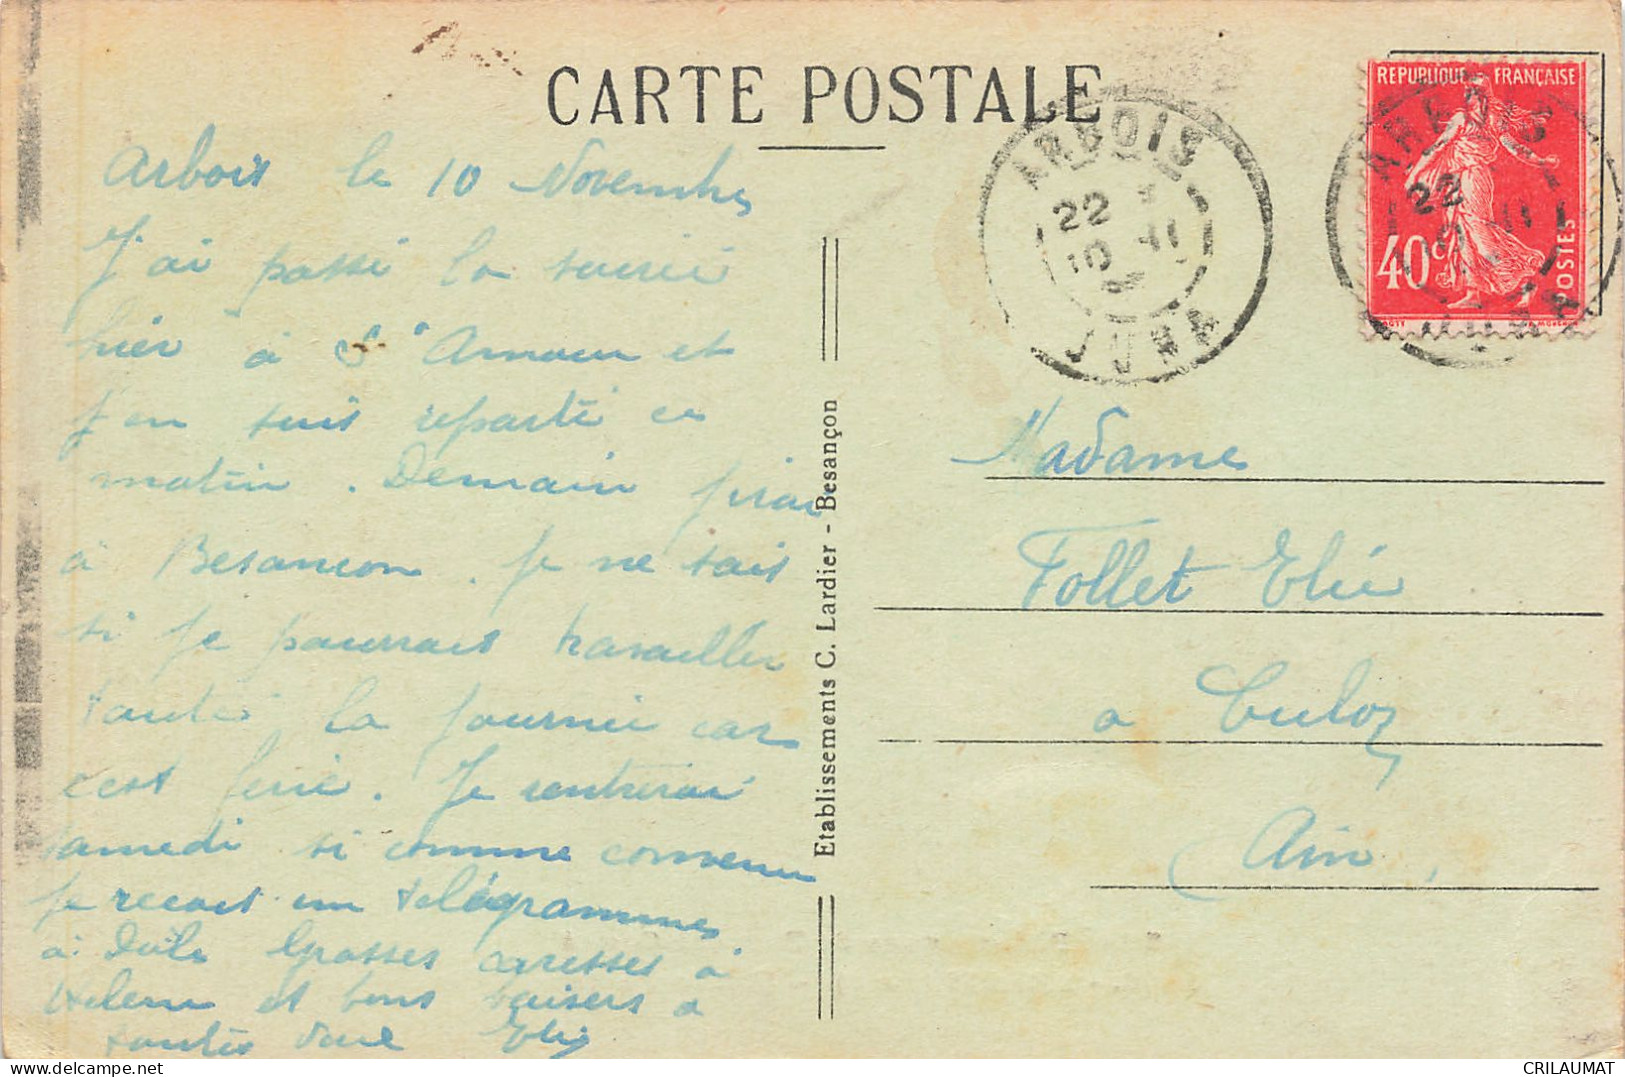 CARTE POSTALE
REPUBLIQUE FRANÇAISE
40c
POSTES
ARBOIS
22
10 - 11
JURA
ARBOIS
22
Arbois le 10 Novembre
J'ai passé la soirée
hier à St Amour et
j'en suis reparti ce
matin. Demain j'irai
à Besancon. Je ne sais
si je pourrais travailler
toute la journée car
c'est ferié. Je rentrerai
samedi si comme convenu
je recois un télégramme
à Dole Grosses caresses à
Helene et bons baisers à
toutes deux Elie
Madame
Follet Elie
a Culoz
Ain
Etablissements C. Lardier - Besançon
CRILAUMAT